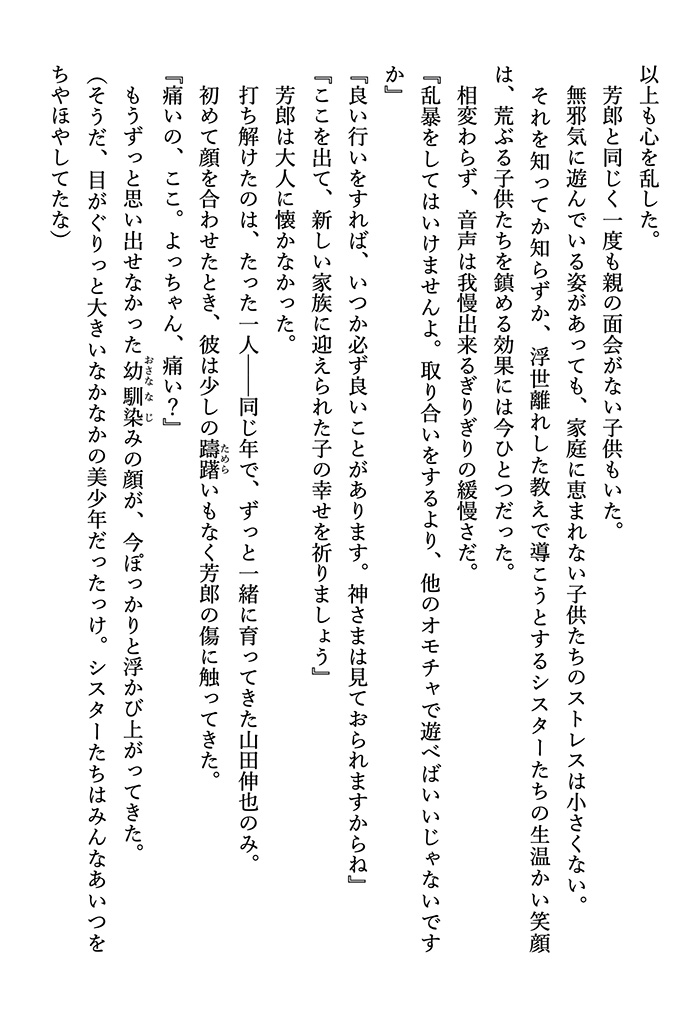 以上も心を乱した。
芳郎と同じく一度も親の面会がない子供もいた。
無邪気に遊んでいる姿があっても、家庭に恵まれない子供たちのストレスは小さくない。
それを知ってか知らずか、浮世離れした教えで導こうとするシスターたちの生温かい笑顔
は、荒ぶる子供たちを鎮める効果には今ひとつだった。
相変わらず、音声は我慢出来るぎりぎりの緩慢さだ。
『乱暴をしてはいけませんよ。取り合いをするより、他のオモチャで遊べばいいじゃないです
か』
『良い行いをすれば、いつか必ず良いことがあります。神さまは見ておられますからね』
『ここを出て、新しい家族に迎えられた子の幸せを祈りましょう』
芳郎は大人に懐かなかった。
打ち解けたのは、たった一人――同じ年で、ずっと一緒に育ってきた山田伸也のみ。
初めて顔を合わせたとき、彼は少しの躊躇いもなく芳郎の傷に触ってきた。
『痛いの、ここ。よっちゃん、痛い？』
もうずっと思い出せなかった幼馴染みの顔が、今ぽっかりと浮かび上がってきた。
(そうだ、目がぐりっと大きいなかなかの美少年だったっけ。シスターたちはみんなあいつを
ちやほやしてたな)